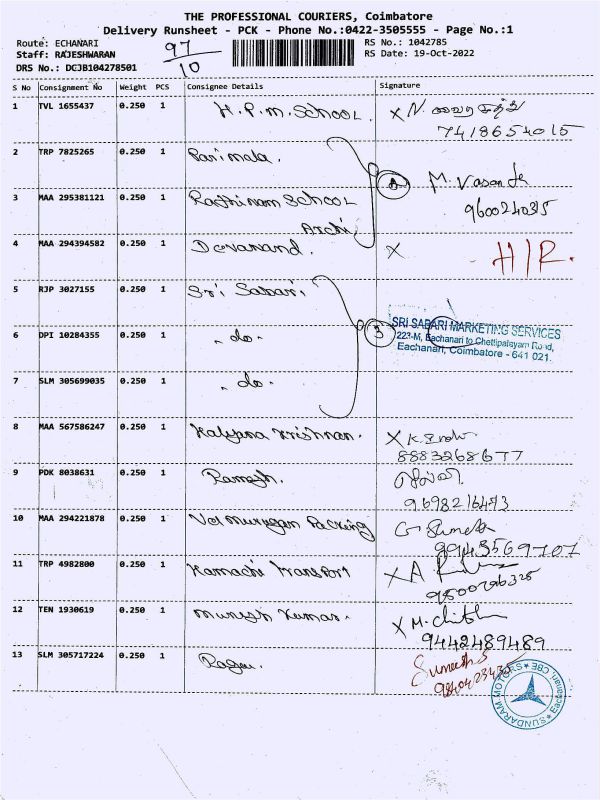 THE PROFESSIONAL COURIERS, Coimbatore
Delivery Runsheet - PCK - Phone No.:0422-3505555 - Page No.:1
Route: ECHANARI
Staff: RAJESHWARAN
DRS No.: DCJB104278501
97/10
RS No.: 1042785
RS Date: 19-Oct-2022
S No Consignment No Weight PCS Consignee Details Signature
1 TVL 1655437 0.250 1 H.P.M. SCHOOL. X N.
7418654015
2 TRP 7825265 0.250 1 Parimala.
3 MAA 295381121 0.250 1 Rathinam School M. Vasan
Archi 960024035
4 MAA 294394582 0.250 1 Devanand. X H/R.
5 RJP 3027155 0.250 1 Sri Sabari
6 DPI 10284355 0.250 1 - do - 3
SRI SABARI MARKETING SERVICES
223-M, Eachanari to Chettipalayam Road,
Eachanari, Coimbatore - 641 021.
7 SLM 305699035 0.250 1 - do -
8 MAA 567586247 0.250 1 Kalyana Krishnan. X K.
8883268677
9 PDK 8038631 0.250 1 Ramesh.
9698216473
10 MAA 294221878 0.250 1 Velmurugan Packing G
9943569707
11 TRP 4982800 0.250 1 Kamachi Transport X A
12 TEN 1930619 0.250 1 Munesh Kumar. X M.
9442489489
13 SLM 305717224 0.250 1 Ragu. Sumesh S
SUNDARAM MOTORS ★ Eachanari CBE ★